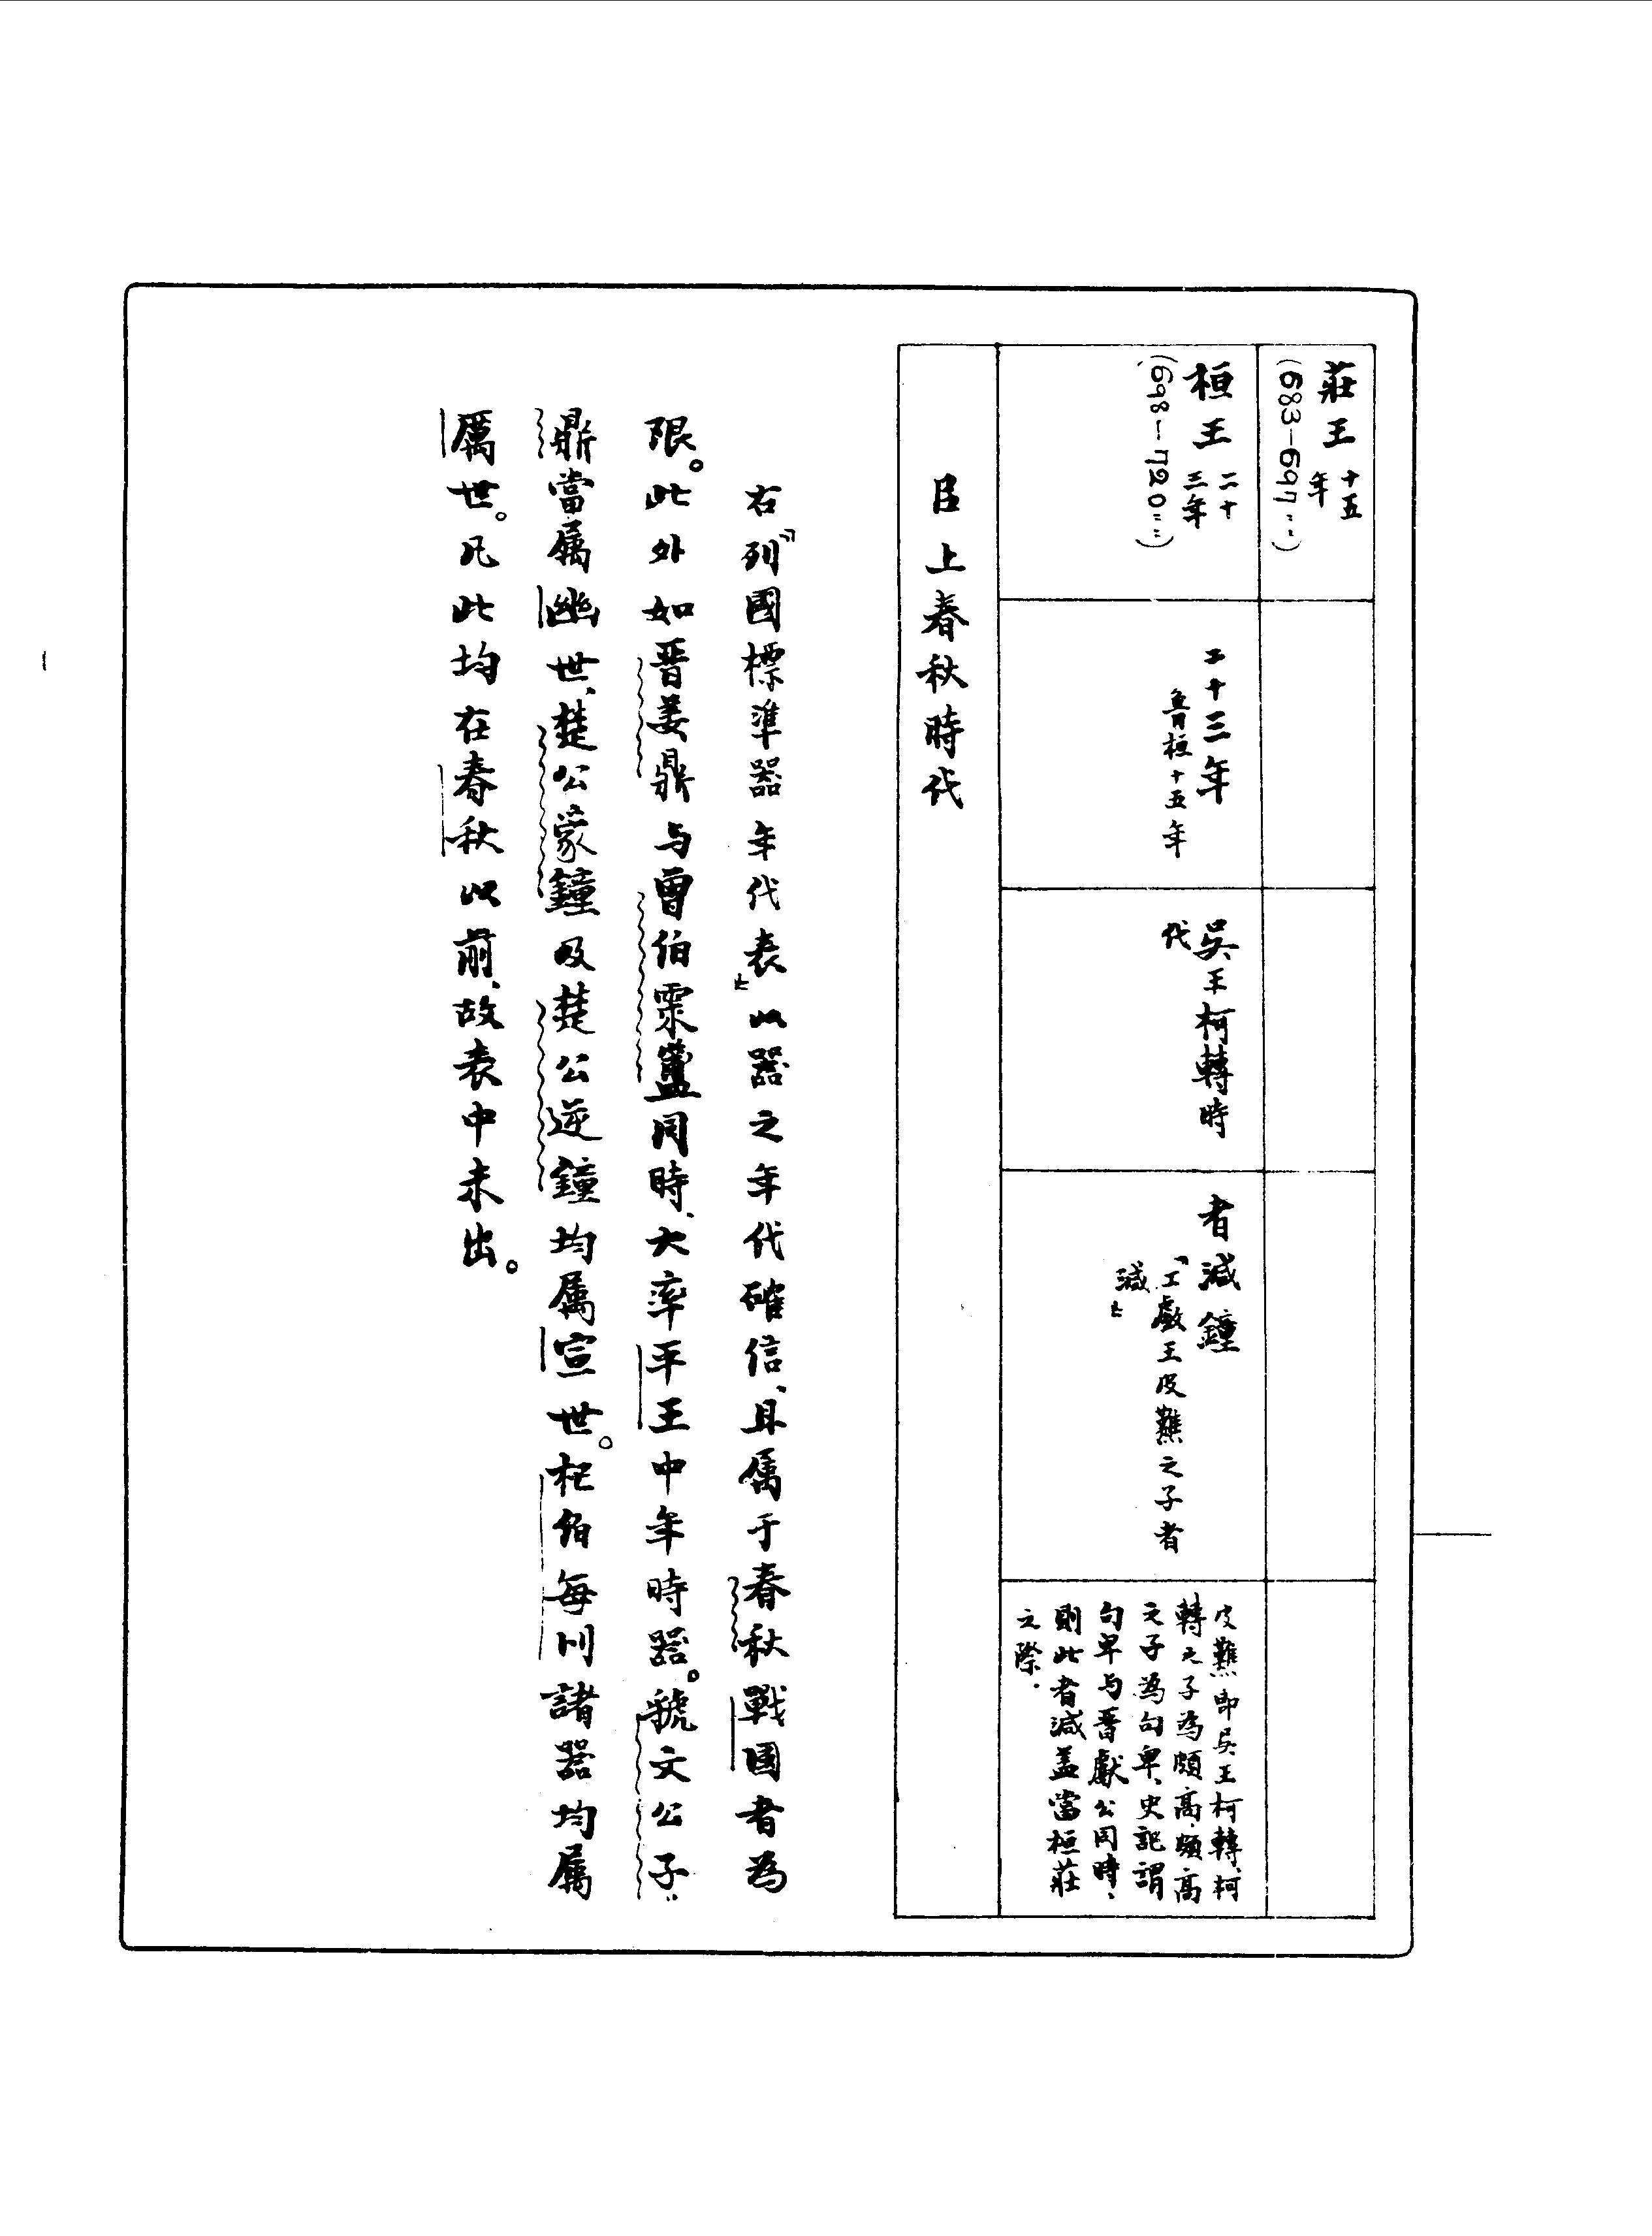 莊王十五年
(683—697…)
桓王二十三年
(698—720…)
二十三年
魯桓十五年
吳王柯轉時
代
者減鐘
「工𠭯王皮難之子者
減」
皮難即吳王柯轉、柯
轉之子為頗高、頗高
之子為句卑、史記謂
句卑与晋獻公同時、
則此者減蓋當桓莊
之際.
㠯上春秋時代
右「列國標準器年代表」以器之年代確信、且屬于春秋戰國者為
限。此外如晋姜鼎与曾伯霥簠同時、大率平王中年時器。虢文公子
鼎當屬幽世、楚公家鐘及楚公逆鐘均屬宣世。杜伯每刅諸器均屬
厲世。凡此均在春秋以前、故表中未出。